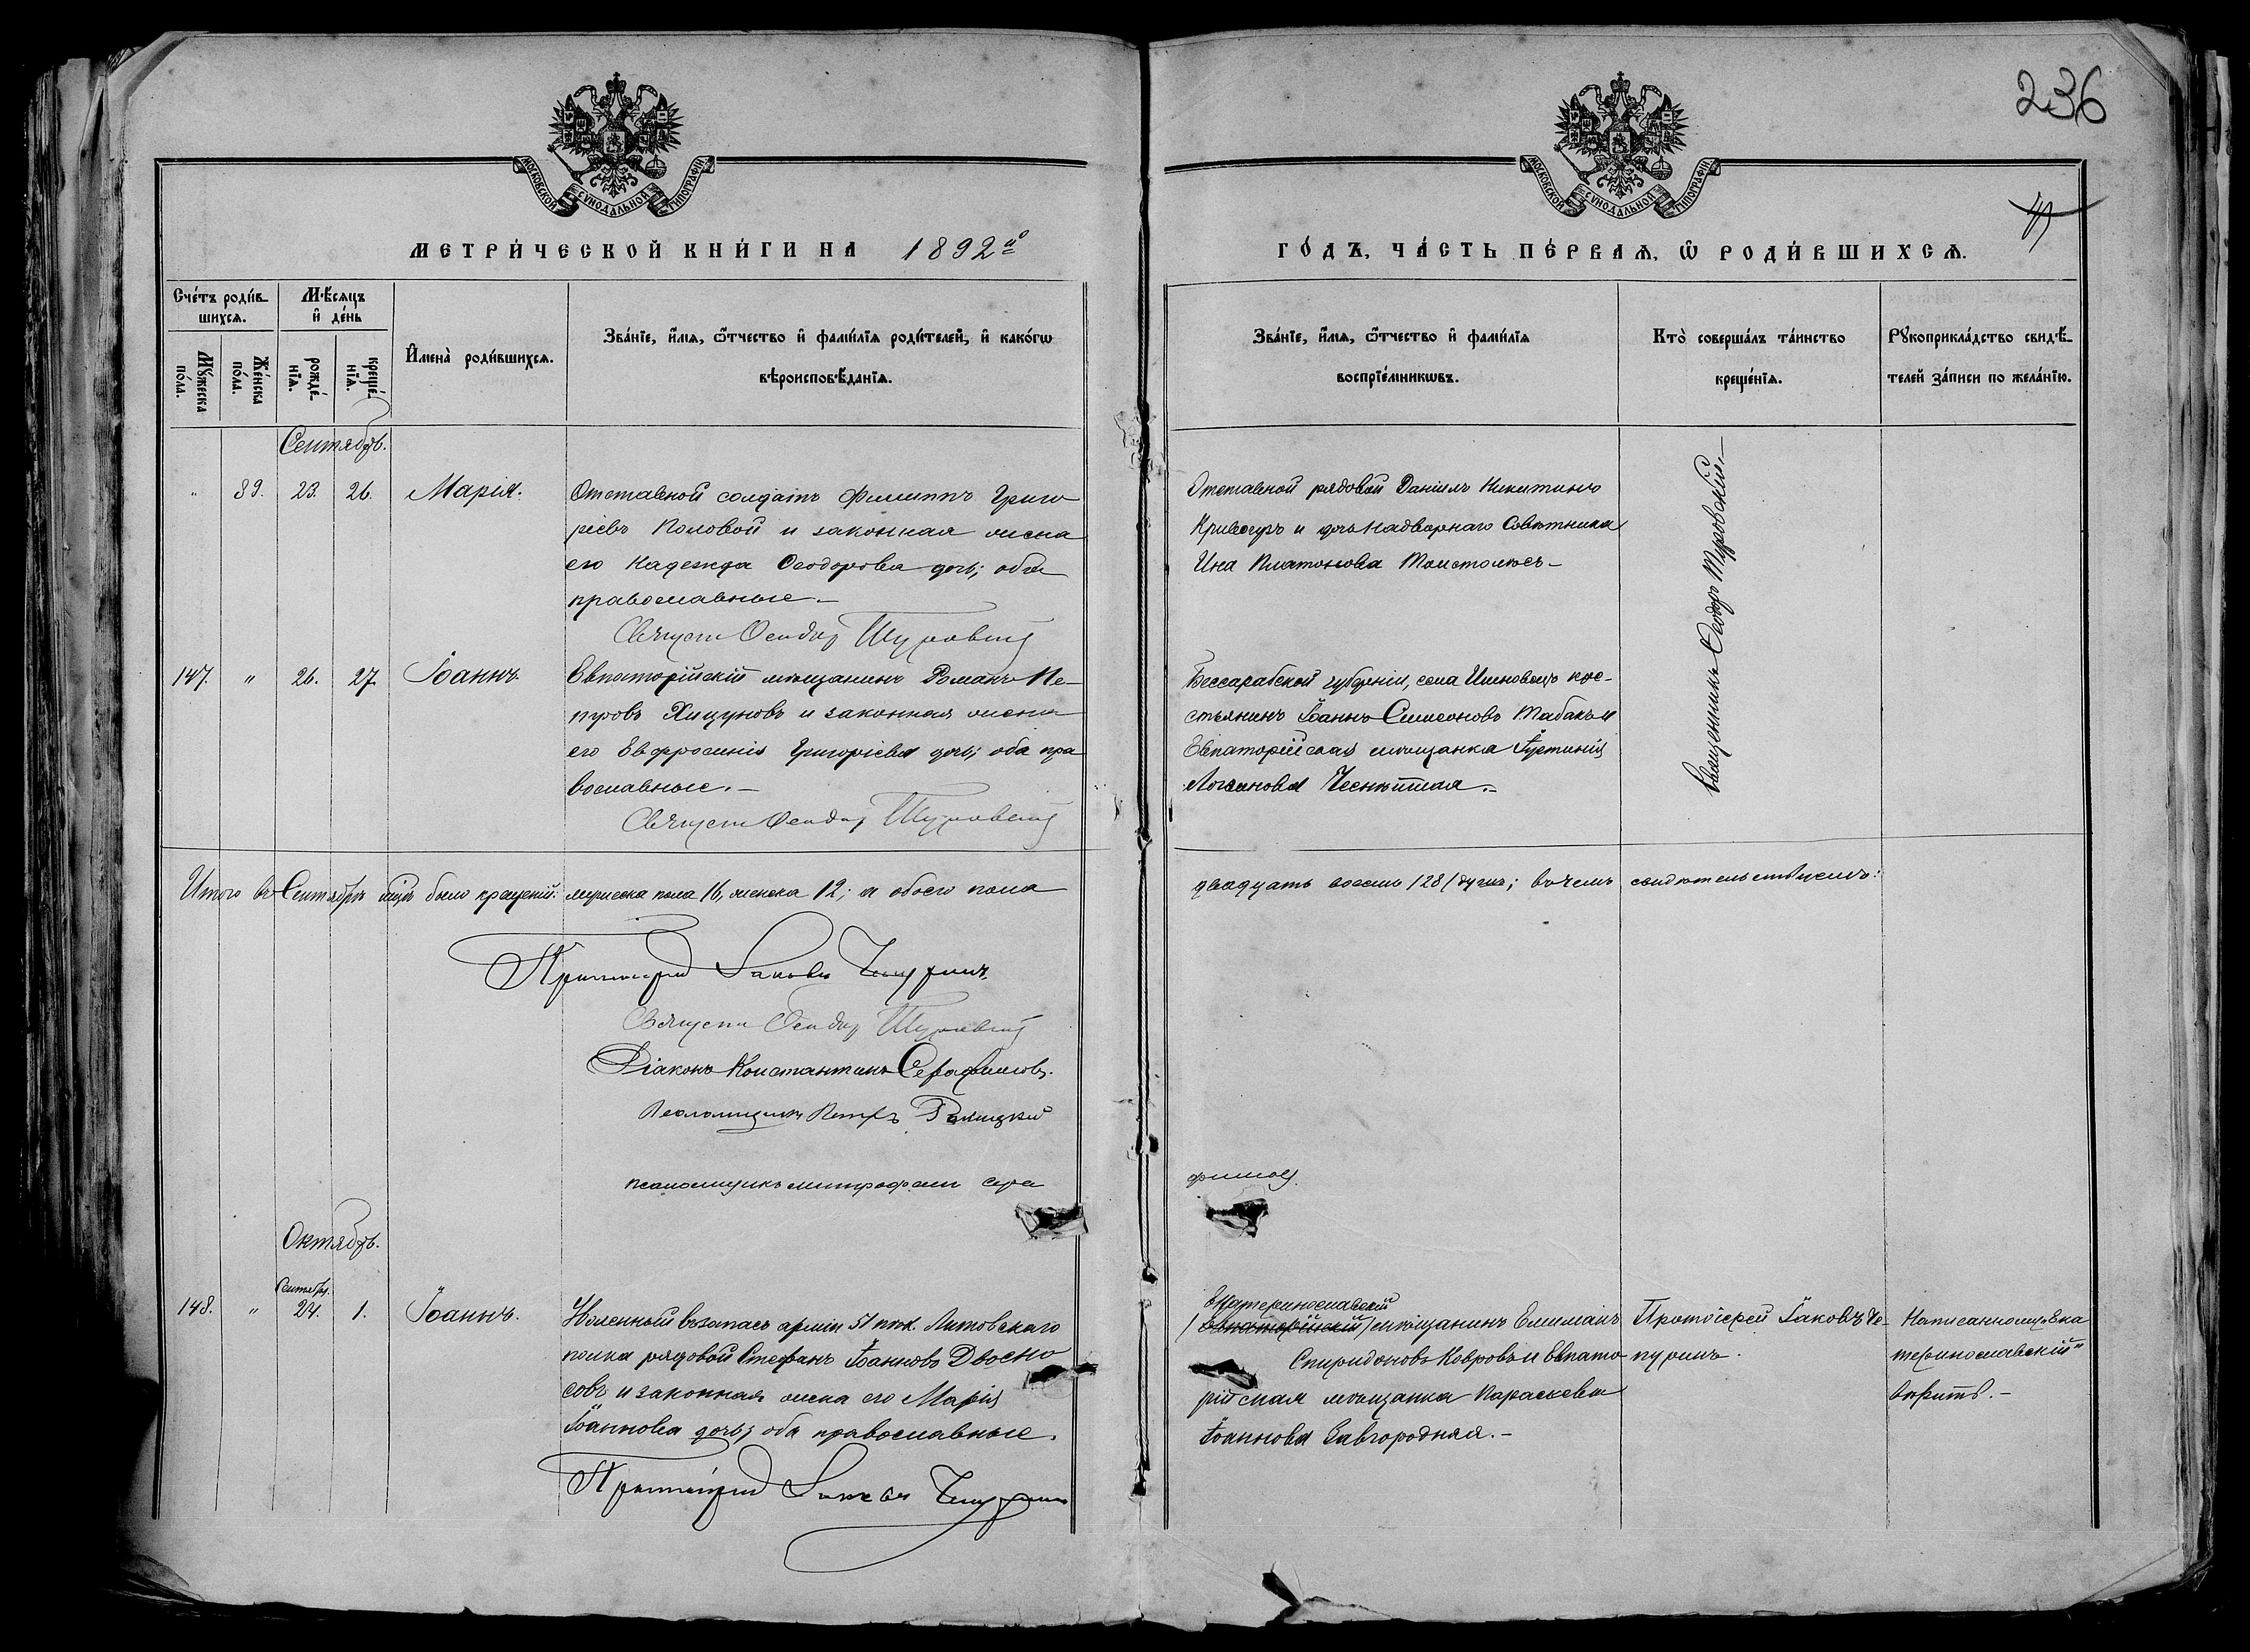 236
МОСКОВСКОЙ СѴНОДАЛЬНОЙ ТИПОГРАФІИ
МОСКОВСКОЙ СѴНОДАЛЬНОЙ ТИПОГРАФІИ
МЕТРИ́ЧЕСКОЙ КНИ́ГИ НА 1892й
ГО́ДЪ, ЧА́СТЬ ПЕ́РВАѦ, Ѽ РОДИ́ВШИХСѦ.
Сче́тъ роди́в-
шихсѧ.
Мꙋ́жеска по́ла.
Же́нска по́ла.
Мѣ́сѧцъ
и҆ де́нь
рожде́-
нїѧ.
креще́-
нїѧ.
И҆мена̀ роди́вшихсѧ.
Зва́нїе, и҆́мѧ, ѻ҆́тчество и҆ фами́лїѧ роди́телей, и҆ како́гѡ
вѣроисповѣ́данїѧ.
Зва́нїе, и҆́мѧ, ѻ҆́тчество и҆ фами́лїѧ
воспрїе́мникѡвъ.
Кто̀ соверша́лъ та́инство
креще́нїѧ.
Рꙋкоприкла́дство свидѣ́-
телей за́писи по жела́нїю.
Сентябрь.
" 89. 23. 26. Марія.
Отставной солдатъ Филиппъ Григо
рьевъ Половой и законная жена
его Надежда Ѳеодорова дочь; оба
православные.—
Священ Ѳеодор Туровскій
Отставной рядовой Даніилъ Никитинъ
и дочь Надворнаго Совѣтника
Платонова
Священникъ Ѳеодоръ Туровскій.—
147. " 26. 27. Іоаннъ.
Евпаторійскій мѣщанинъ Романъ Пе-
тровъ Хицуновъ и законная жена
его Евфросинія Григоріева дочь; оба пра
вославные.—
Священ Ѳеодор Туровскій
Бессарабской губерніи, села крес-
стьянинъ Іоаннъ Симеоновъ Табакъ и
Евпаторійская мѣщанка Іустинія
Логинова
Итого въ Сентябрѣ мцѣ было крещеній: мужеска пола 16, женска 12; а обоего пола
двадцать восемь /28/ душъ; въ чемъ свидѣтельствуемъ:
Протоіерей Іаковъ Чепуринъ.
Священ Ѳеодор Туровскій
Діаконъ Константинъ Серафимовъ.
Псаломщикъ Петръ
псаломщикъ Митрофанъ Сера
фимовъ.
Октябрь.
Сентября.
148. " 24. 1. Іоаннъ.
Уволенный въ запасъ арміи 51 пѣх. Литовскаго
полка рядовой Стефанъ Іоанновъ Двоено
совъ и законная жена его Марія
Іоаннова дочь; оба православные.
Протоіерей Іаковъ Чепуринъ
Екатеринославскій
/Евпаторійскій/ мѣщанинъ
Спиридоновъ Ковровъ и Евпато
рійская мѣщанка Параскева
Іоаннова Завгородняя.—
Протоіерей Іаковъ Че-
пуринъ.
Написанному „Ека
теринославскій"
вѣрить.—